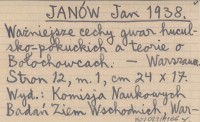 JANÓW Jan 1938.
Ważniejsze cechy gwar hucul-
sko-pokuckich a teorie o
Bołochowcach. — Warszawa
Stron 12, m. 1, cm 24 x 17.
Wyd.: Komisja Naukowych
Badań Ziem Wschodnich, War-